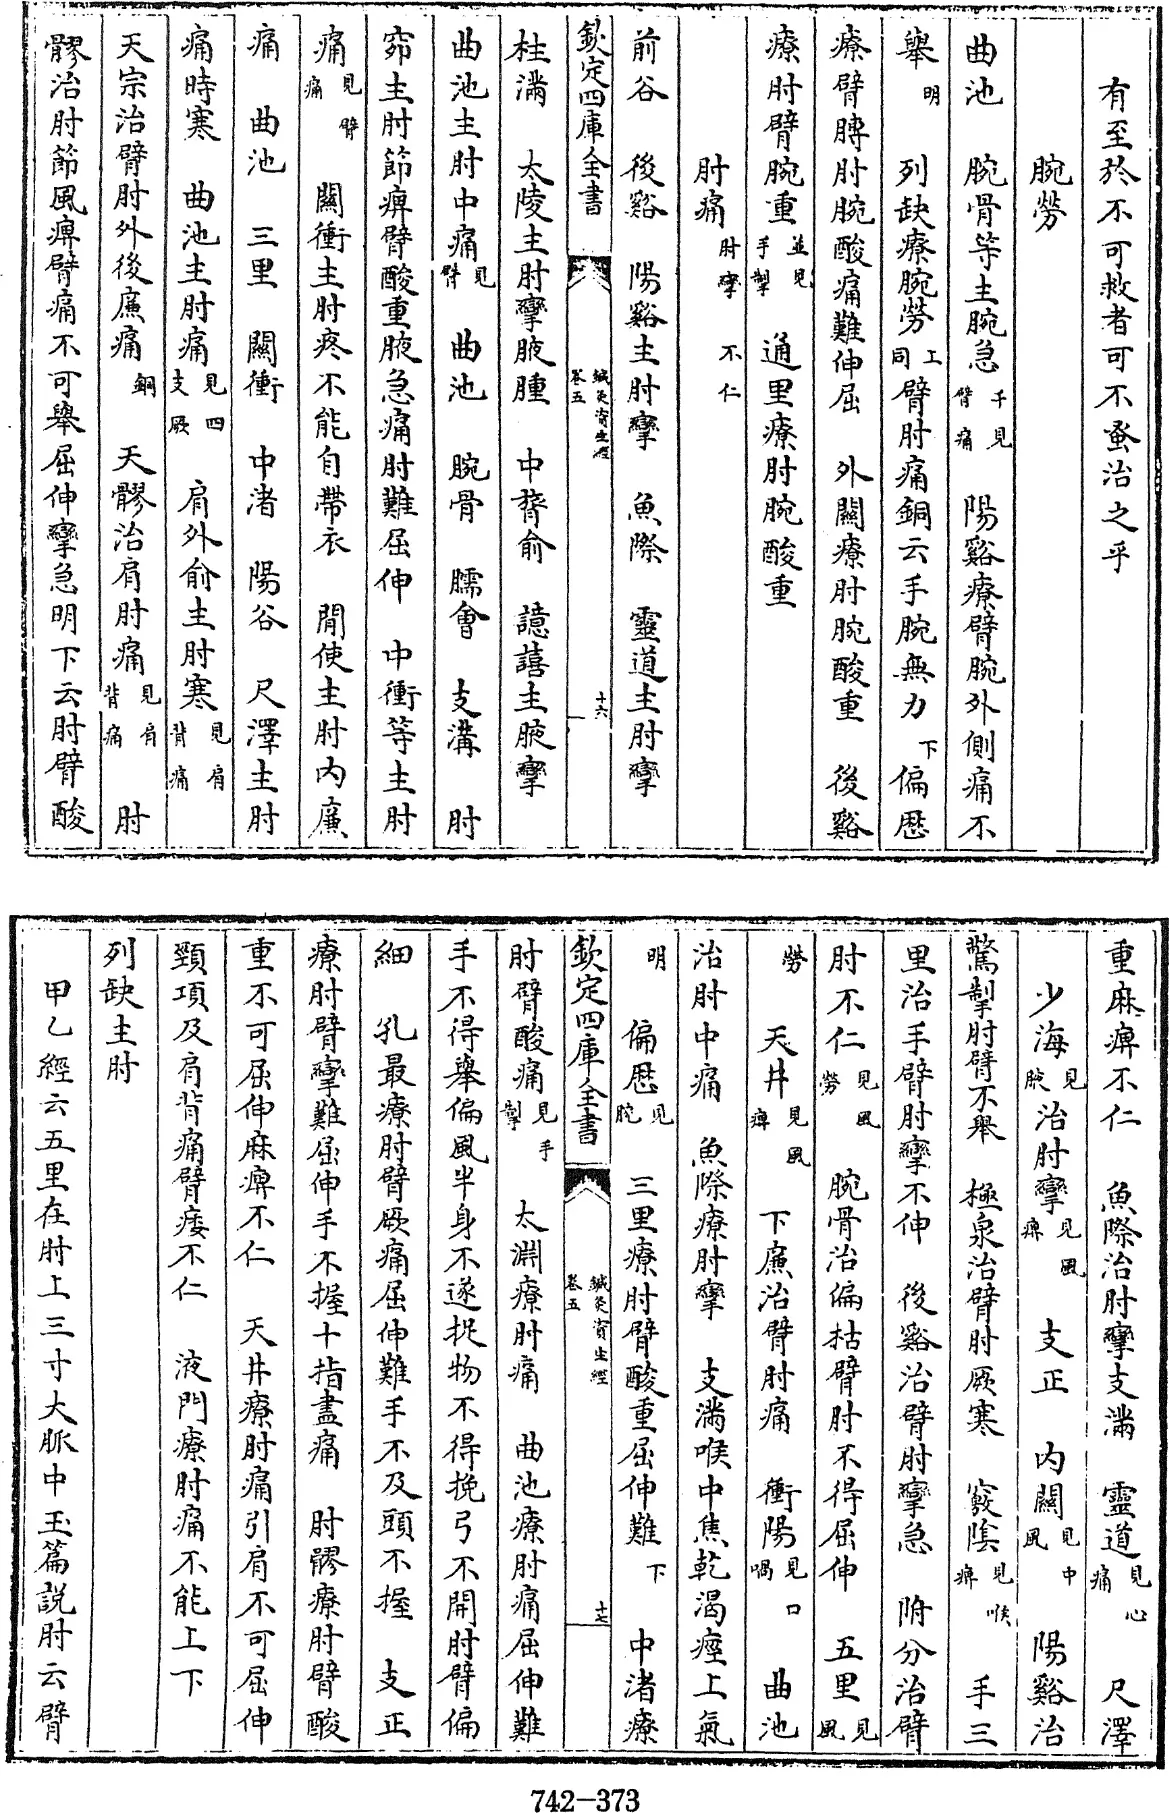 有至於不可救者可不蚤治之乎
腕勞
曲池　腕骨等主腕急千見臂痛　陽谿療臂腕外側痛不
舉明　列缺療腕勞上同臂肘痛銅云手腕無力下　偏歴
療臂膊肘腕酸痛難伸屈　外關療肘腕酸重　後谿
療肘臂腕重並見手掣　通里療肘腕酸重
肘痛肘攣不仁
前谷　後谿　陽谿主肘攣　魚際　靈道主肘攣
欽定四庫全書　鍼灸資生經　卷五　十六
柱滿　太陵主肘攣腋腫　中膂俞　譩譆主腋攣
曲池主肘中痛見臂　曲池　腕骨　臑會　支溝　肘
窌主肘節痹臂酸重腋急痛肘難屈伸　中衝等主肘
痛見臂痛　關衝主肘疼不能自帶衣　間使主肘内廉
痛　曲池　三里　關衝　中渚　陽谷　尺澤主肘
痛時寒　曲池主肘痛見四支厥　肩外俞主肘寒見肩背痛
天宗治臂肘外後廉痛銅　天髎治肩肘痛見肩背痛　肘
髎治肘節風痹臂痛不可舉屈伸攣急明下云肘臂酸
重麻痹不仁　魚際治肘攣支滿　靈道見心痛　尺澤
少海見腋治肘攣見風痹　支正　内關見中風　陽谿治
驚掣肘臂不舉　極泉治臂肘厥寒　竅陰見喉痹　手三
里治手臂肘攣不伸　後谿治臂肘攣急　附分治臂
肘不仁見風勞　腕骨治偏枯臂肘不得屈伸　五里見風
勞　天井見風痹　下廉治臂肘痛　衝陽見口喎　曲池
治肘中痛　魚際療肘攣　支滿喉中焦乾渴痙上氣
明　偏歴見腕　三里療肘臂酸重屈伸難下　中渚療
欽定四庫全書　鍼灸資生經　卷五　十七
肘臂酸痛見手掣　太淵療肘痛　曲池療肘痛屈伸難
手不得舉偏風半身不遂捉物不得挽弓不開肘臂偏
細　孔最療肘臂厥痛屈伸難手不及頭不握　支正
療肘臂攣難屈伸手不握十指盡痛　肘髎療肘臂酸
重不可屈伸麻痹不仁　天井療肘痛引肩不可屈伸
頸項及肩背痛臂痿不仁　液門療肘痛不能上下
列缺主肘
甲乙經云五里在肘上三寸大脈中玉篇説肘云臂
742-373